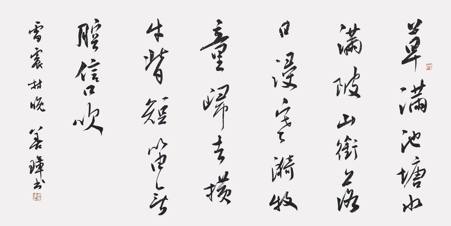 草满池塘水
满陂山衔落
日浸寒漪牧
童归去横
牛背短笛无
腔信口吹
雷震村晚 善璋书